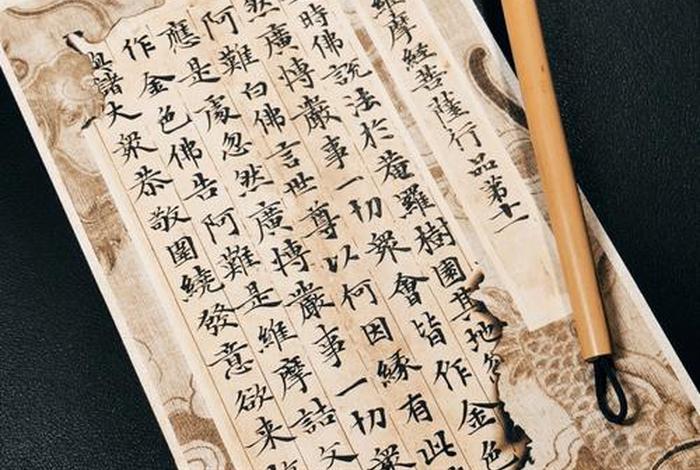 維摩經菩薩行品第十一
時佛說法於菴羅樹園其地忽
然廣博嚴事一切眾會皆作金色
阿難白佛言世尊以何因緣有此
應是處忽然廣博嚴事一切眾
作金色佛告阿難是維摩詰文
與諸大眾恭敬圍繞發意欲來